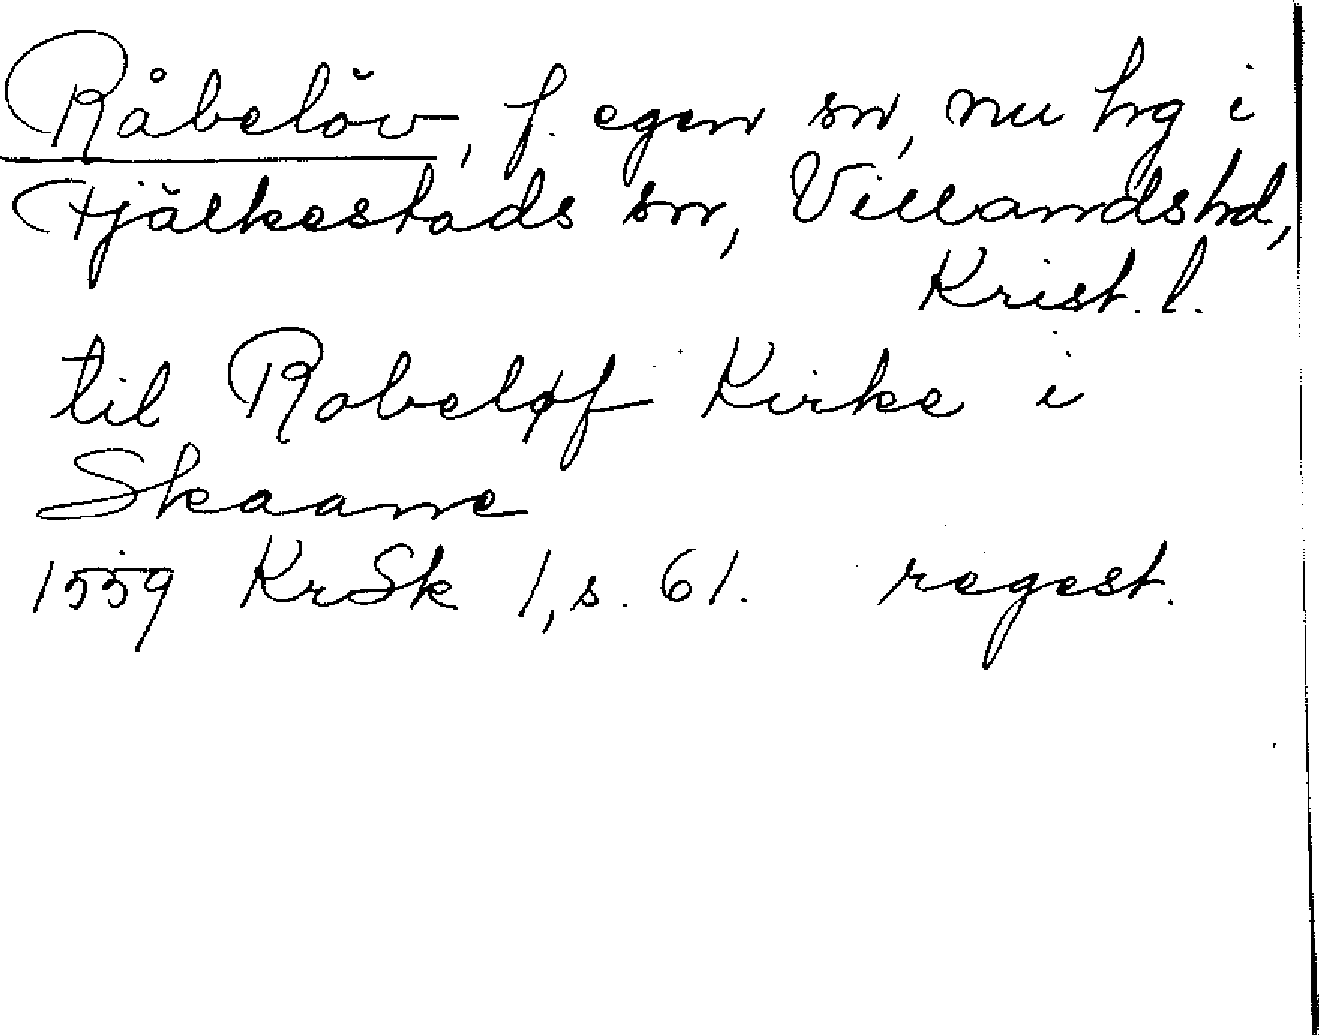 Råbelöv, f. egen sn, nu hg i
Fjälkestads sn, Villands hd,
Krist. l.
til Robeløf Kirke i
Skaane
1559 KrSk 1, s. 61. regest.